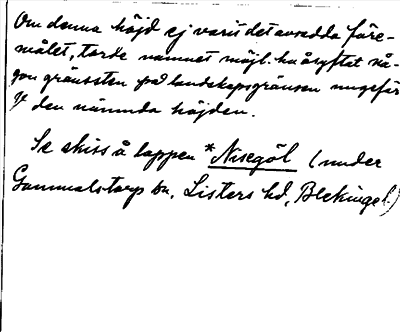 Om denna höjd ej varit det avsedda före-
målet, torde namnet möjl. ha åsyftat nå-
gon gränssten på landskapsgränsen ungefär
på den nämnda höjden.
Se skiss å lappen *Nisegöl (under
Gammalstorp sn, Listers hd, Blekinge l.)